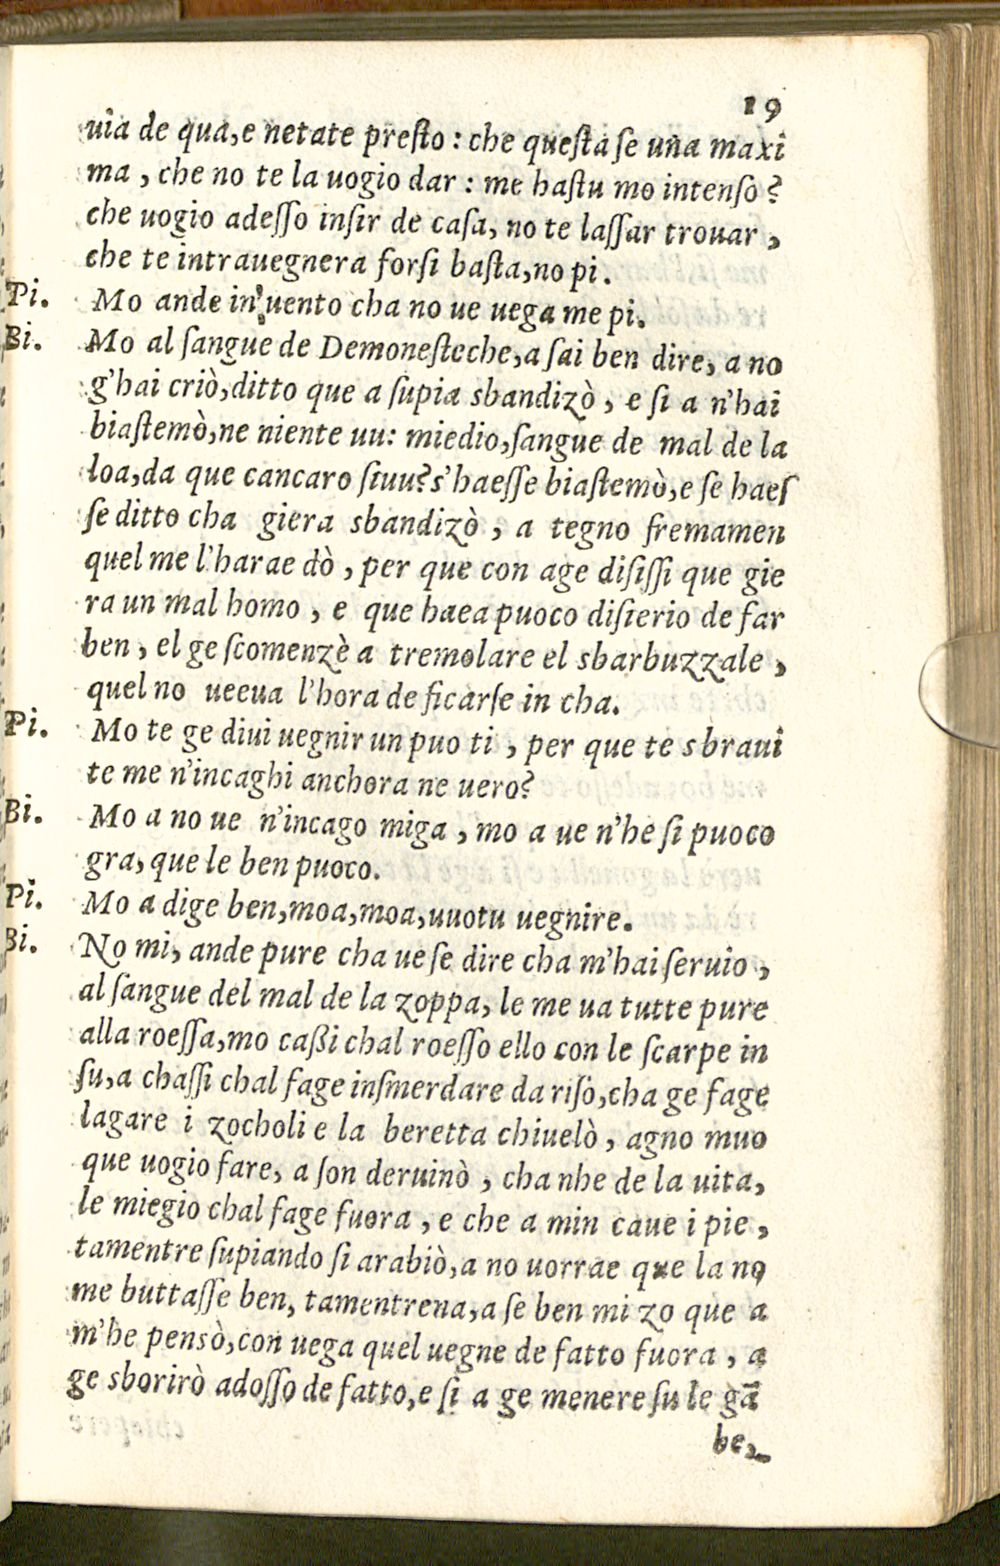 19
uia de qua,e netate presto : che questa se una maxi
ma , che no te la uogio dar : me hastu mo intenso?
che uogio adesso insir de casa, no te lassar trouar ,
che te intrauegnera forsi basta,no pi.
Pi. Mo ande in uento cha no ue uega me pi.
Bi. Mo al sangue de Demonesteche,a sai ben dire, a no
g'hai criò,ditto que a supia sbandizò , e si a n'hai
biastemò,ne niente uu: miedio,sangue de mal de la
loa,da que cancaro siuu? s'haesse biastemò,e se haes
se ditto cha giera sbandizò , a tegno fremamen
quel me l'harae dò , per que con age disissi que gie
ra un mal homo , e que haea puoco disierio de far
ben , el ge scomenzè a tremolare el sbarbuzzale ,
quel no ueeua l'hora de ficarse in cha.
Pi. Mo te ge diui uegnir un puo ti , per que te sbraui
te me n'incaghi anchora ne uero?
Bi. Mo a no ue n'incago miga , mo a ue n'he si puoco
gra, que le ben puoco.
Pi. Mo a dige ben,moa,moa,uuotu uegnire.
Bi. No mi, ande pure cha ue se dire cha m'hai seruio ,
al sangue del mal de la zoppa, le me ua tutte pure
alla roessa,mo caßi chal roesso ello con le scarpe in
su,a chassi chal fage insmerdare da riso,cha ge fage
lagare i zocholi e la beretta chiuelò , agno muo
que uogio fare, a son deruinò , cha nhe de la uita,
le miegio chal fage fuora , e che a min caue i pie ,
tamentre supiando si arabiò,a no uorrae que la no
me buttasse ben, tamentrena,a se ben mi zo que a
m'he pensò,con uega quel uegne de fatto fuora , a
ge sborirò adosso de fatto,e si a ge menere su le gā
be,